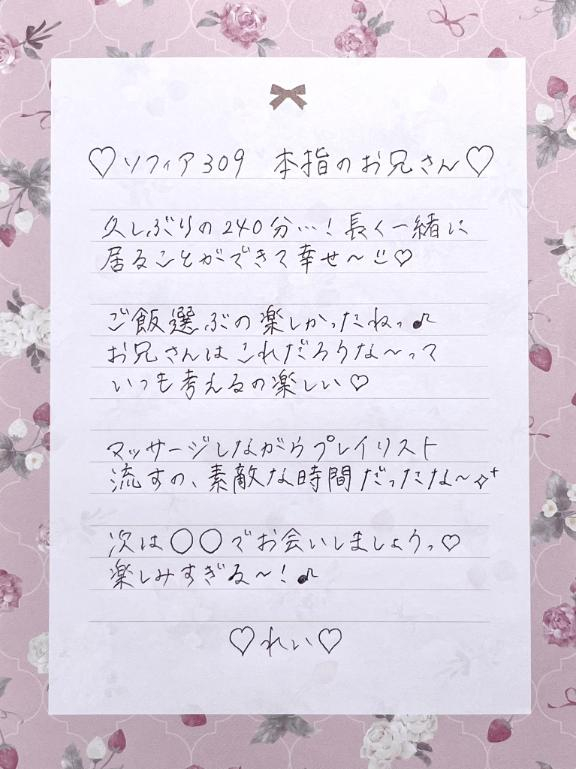 ♡ソフィア309 本指のお兄さん♡
久しぶりの240分…!長く一緒に
居ることができて幸せ〜♡
ご飯選ぶの楽しかったねっ♪
お兄さんはこれだろうな〜って
いつも考えるの楽しい♡
マッサージしながらプレイリスト
流すの、素敵な時間だったな〜✧
次は〇〇でお会いしましょうっ♡
楽しみすぎる〜!♪
♡れい♡